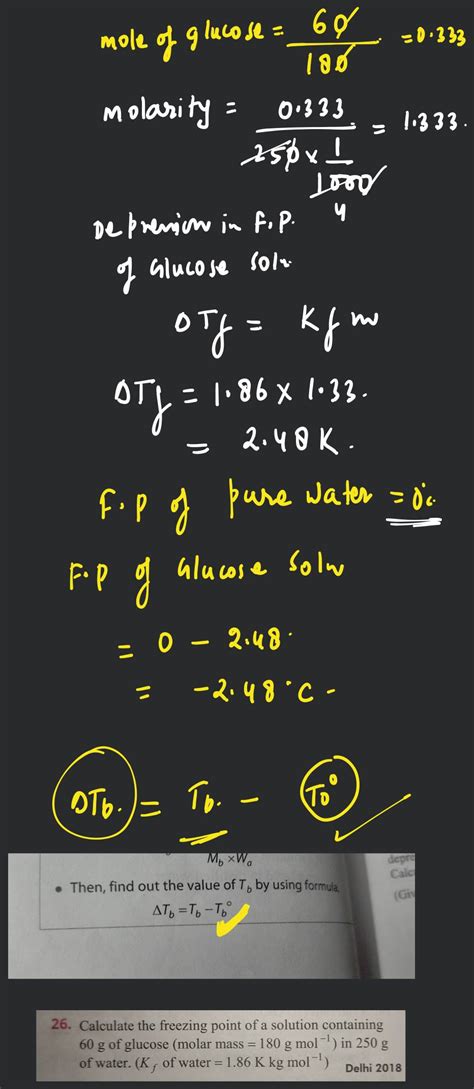 mole of glucose = 60 / 180 = 0.333
molarity = 0.333 / 250 × 1/1000 = 1.333.
4
Depression in F.P.
of Glucose Soln
ΔTf = Kf m
ΔTf = 1.86 × 1.33.
= 2.48 K.
F.P of pure water = 0°c.
F.P of Glucose Soln
= 0 - 2.48.
= -2.48°C -
ΔTb. = Tb. - Tb°
Mb ×Wa
• Then, find out the value of Tb by using formula,
ΔTb = Tb – Tb°
depre
Calc
(Giv
26. Calculate the freezing point of a solution containing
60 g of glucose (molar mass = 180 g mol⁻¹) in 250 g
of water. (Kf of water = 1.86 K kg mol⁻¹) Delhi 2018